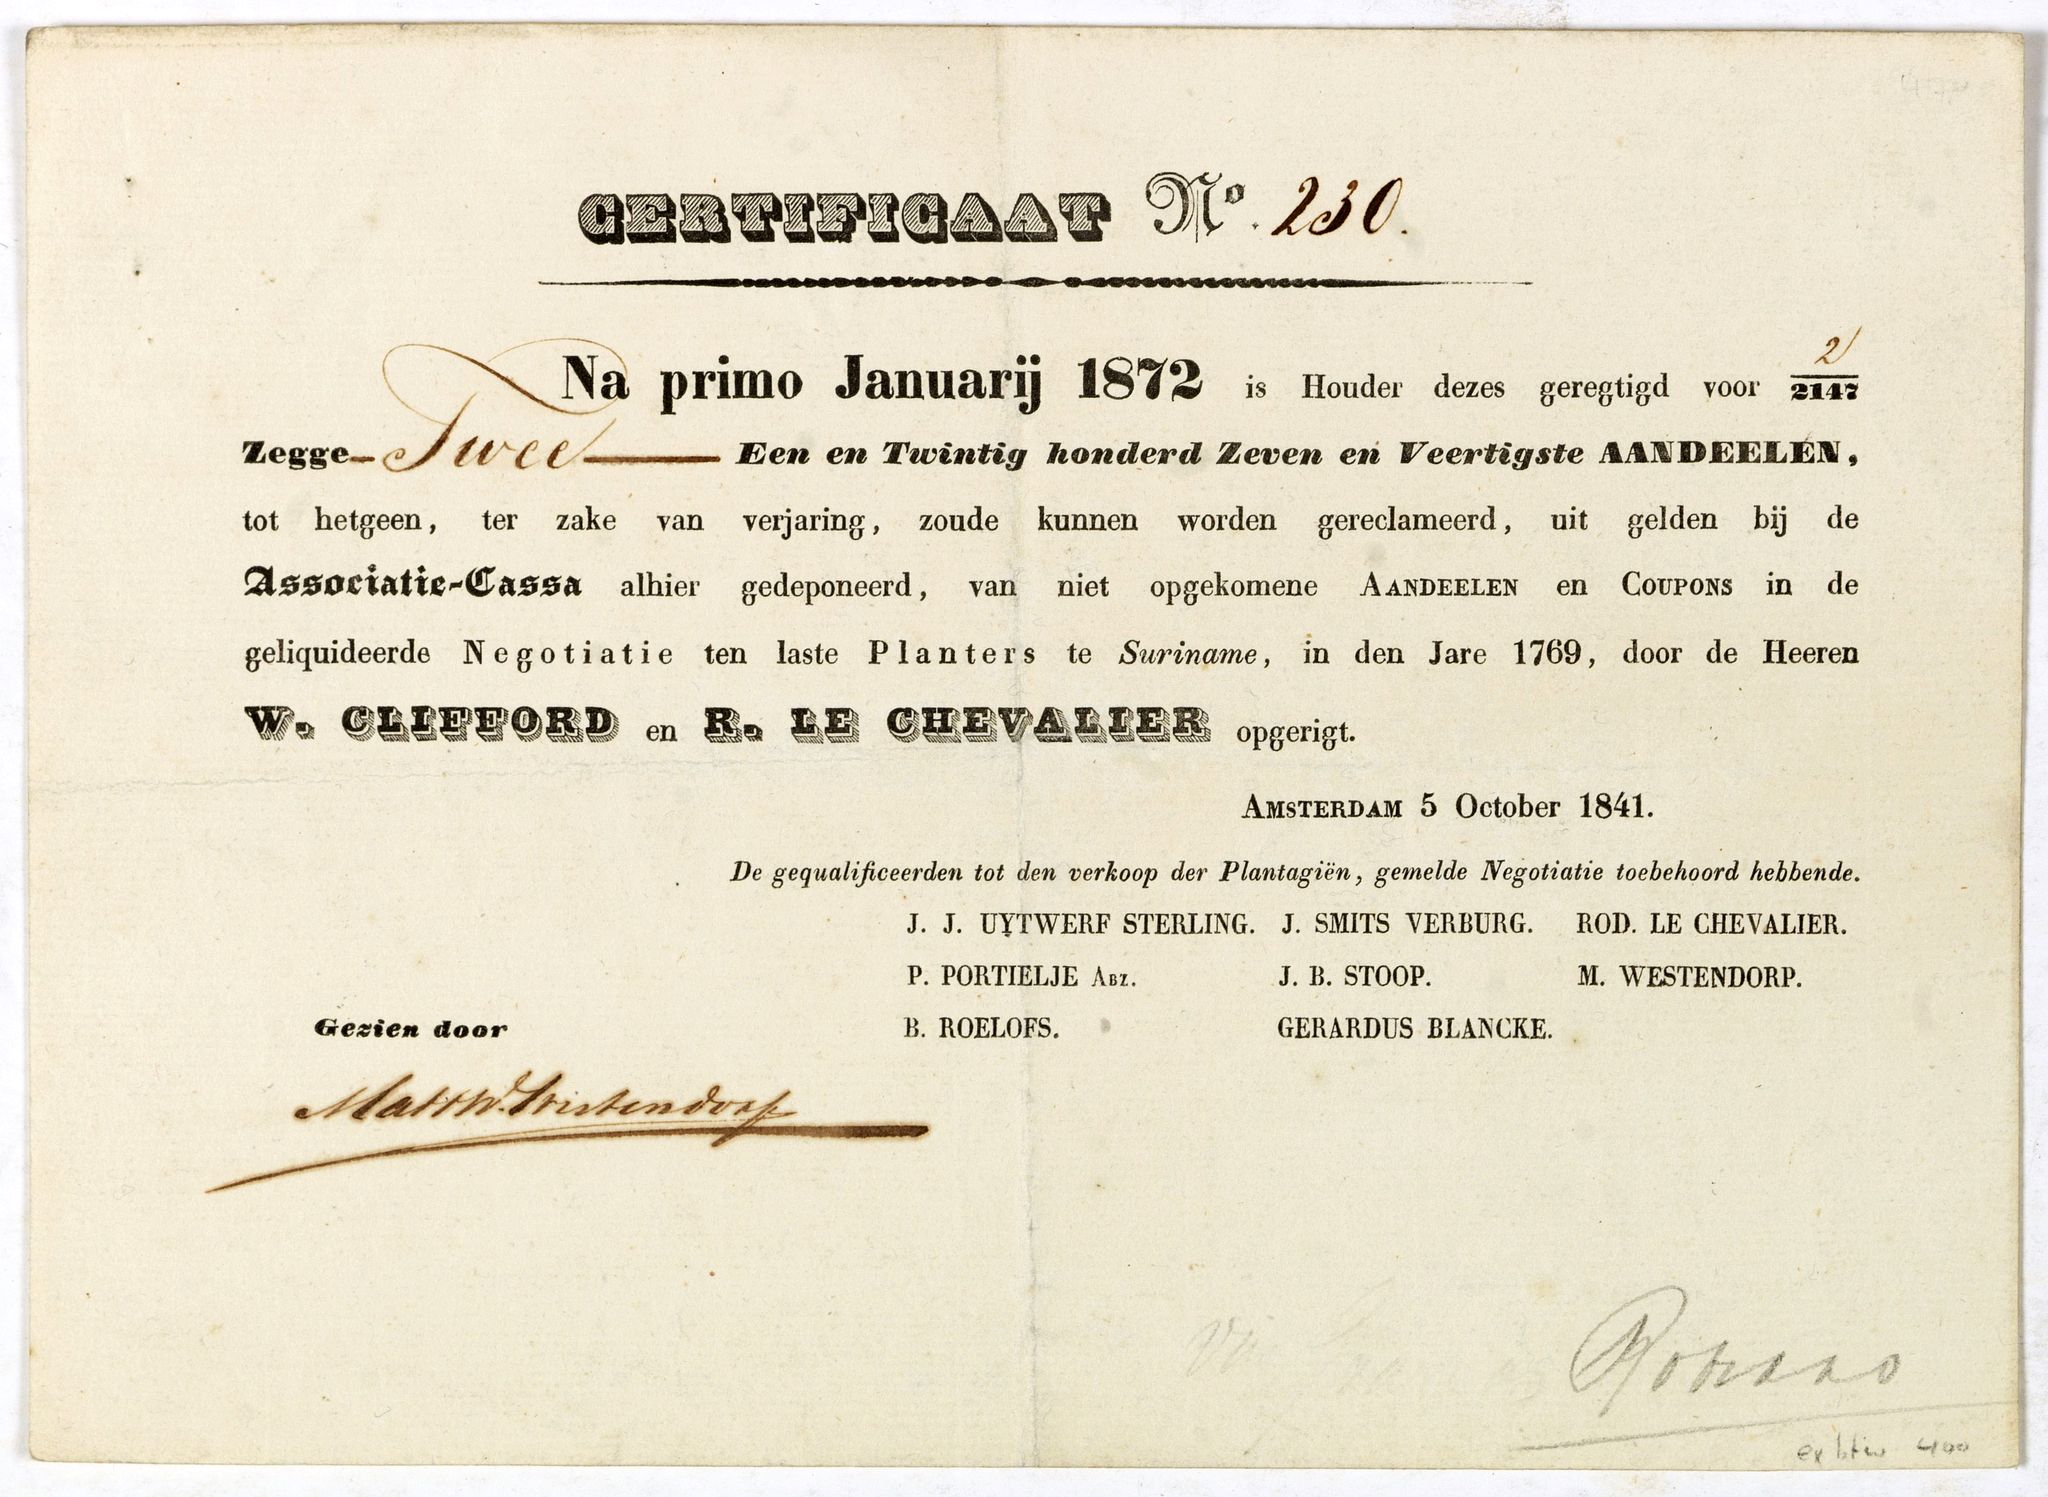 CERTIFICAAT No. 230.
Na primo Januarij 1872 is Houder dezes geregtigd voor 2/2147
Zegge Twee Een en Twintig honderd Zeven en Veertigste AANDEELEN,
tot hetgeen, ter zake van verjaring, zoude kunnen worden gereclameerd, uit gelden bij de
Associatie-Cassa alhier gedeponeerd, van niet opgekomene AANDEELEN en COUPONS in de
geliquideerde Negotiatie ten laste Planters te Suriname, in den Jare 1769, door de Heeren
W. CLIFFORD en R. LE CHEVALIER opgerigt.
AMSTERDAM 5 October 1841.
De gequalificeerden tot den verkoop der Plantagiën, gemelde Negotiatie toebehoord hebbende.
J. J. UYTWERF STERLING. J. SMITS VERBURG. ROD. LE CHEVALIER.
P. PORTIELJE ABZ. J. B. STOOP. M. WESTENDORP.
B. ROELOFS. GERARDUS BLANCKE.
Gezien door
Matthd. Westendorp
400